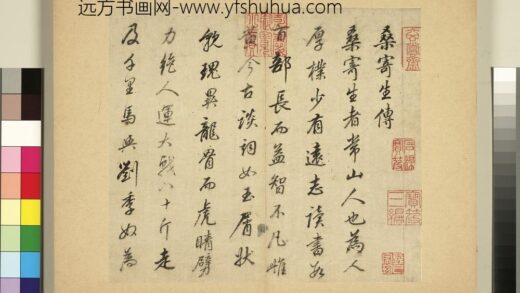 远方书画网-www.yfshuhua.com
桑寄生傳
桑寄生者常山人也為人
厚樸少有遠志讀書數
百部長而益智不凡雌
黄今古談詞如玉屑狀
貌瑰異龍骨而虎睛臂
力絶人運大戟八十斤走
及千里馬與劉季奴為